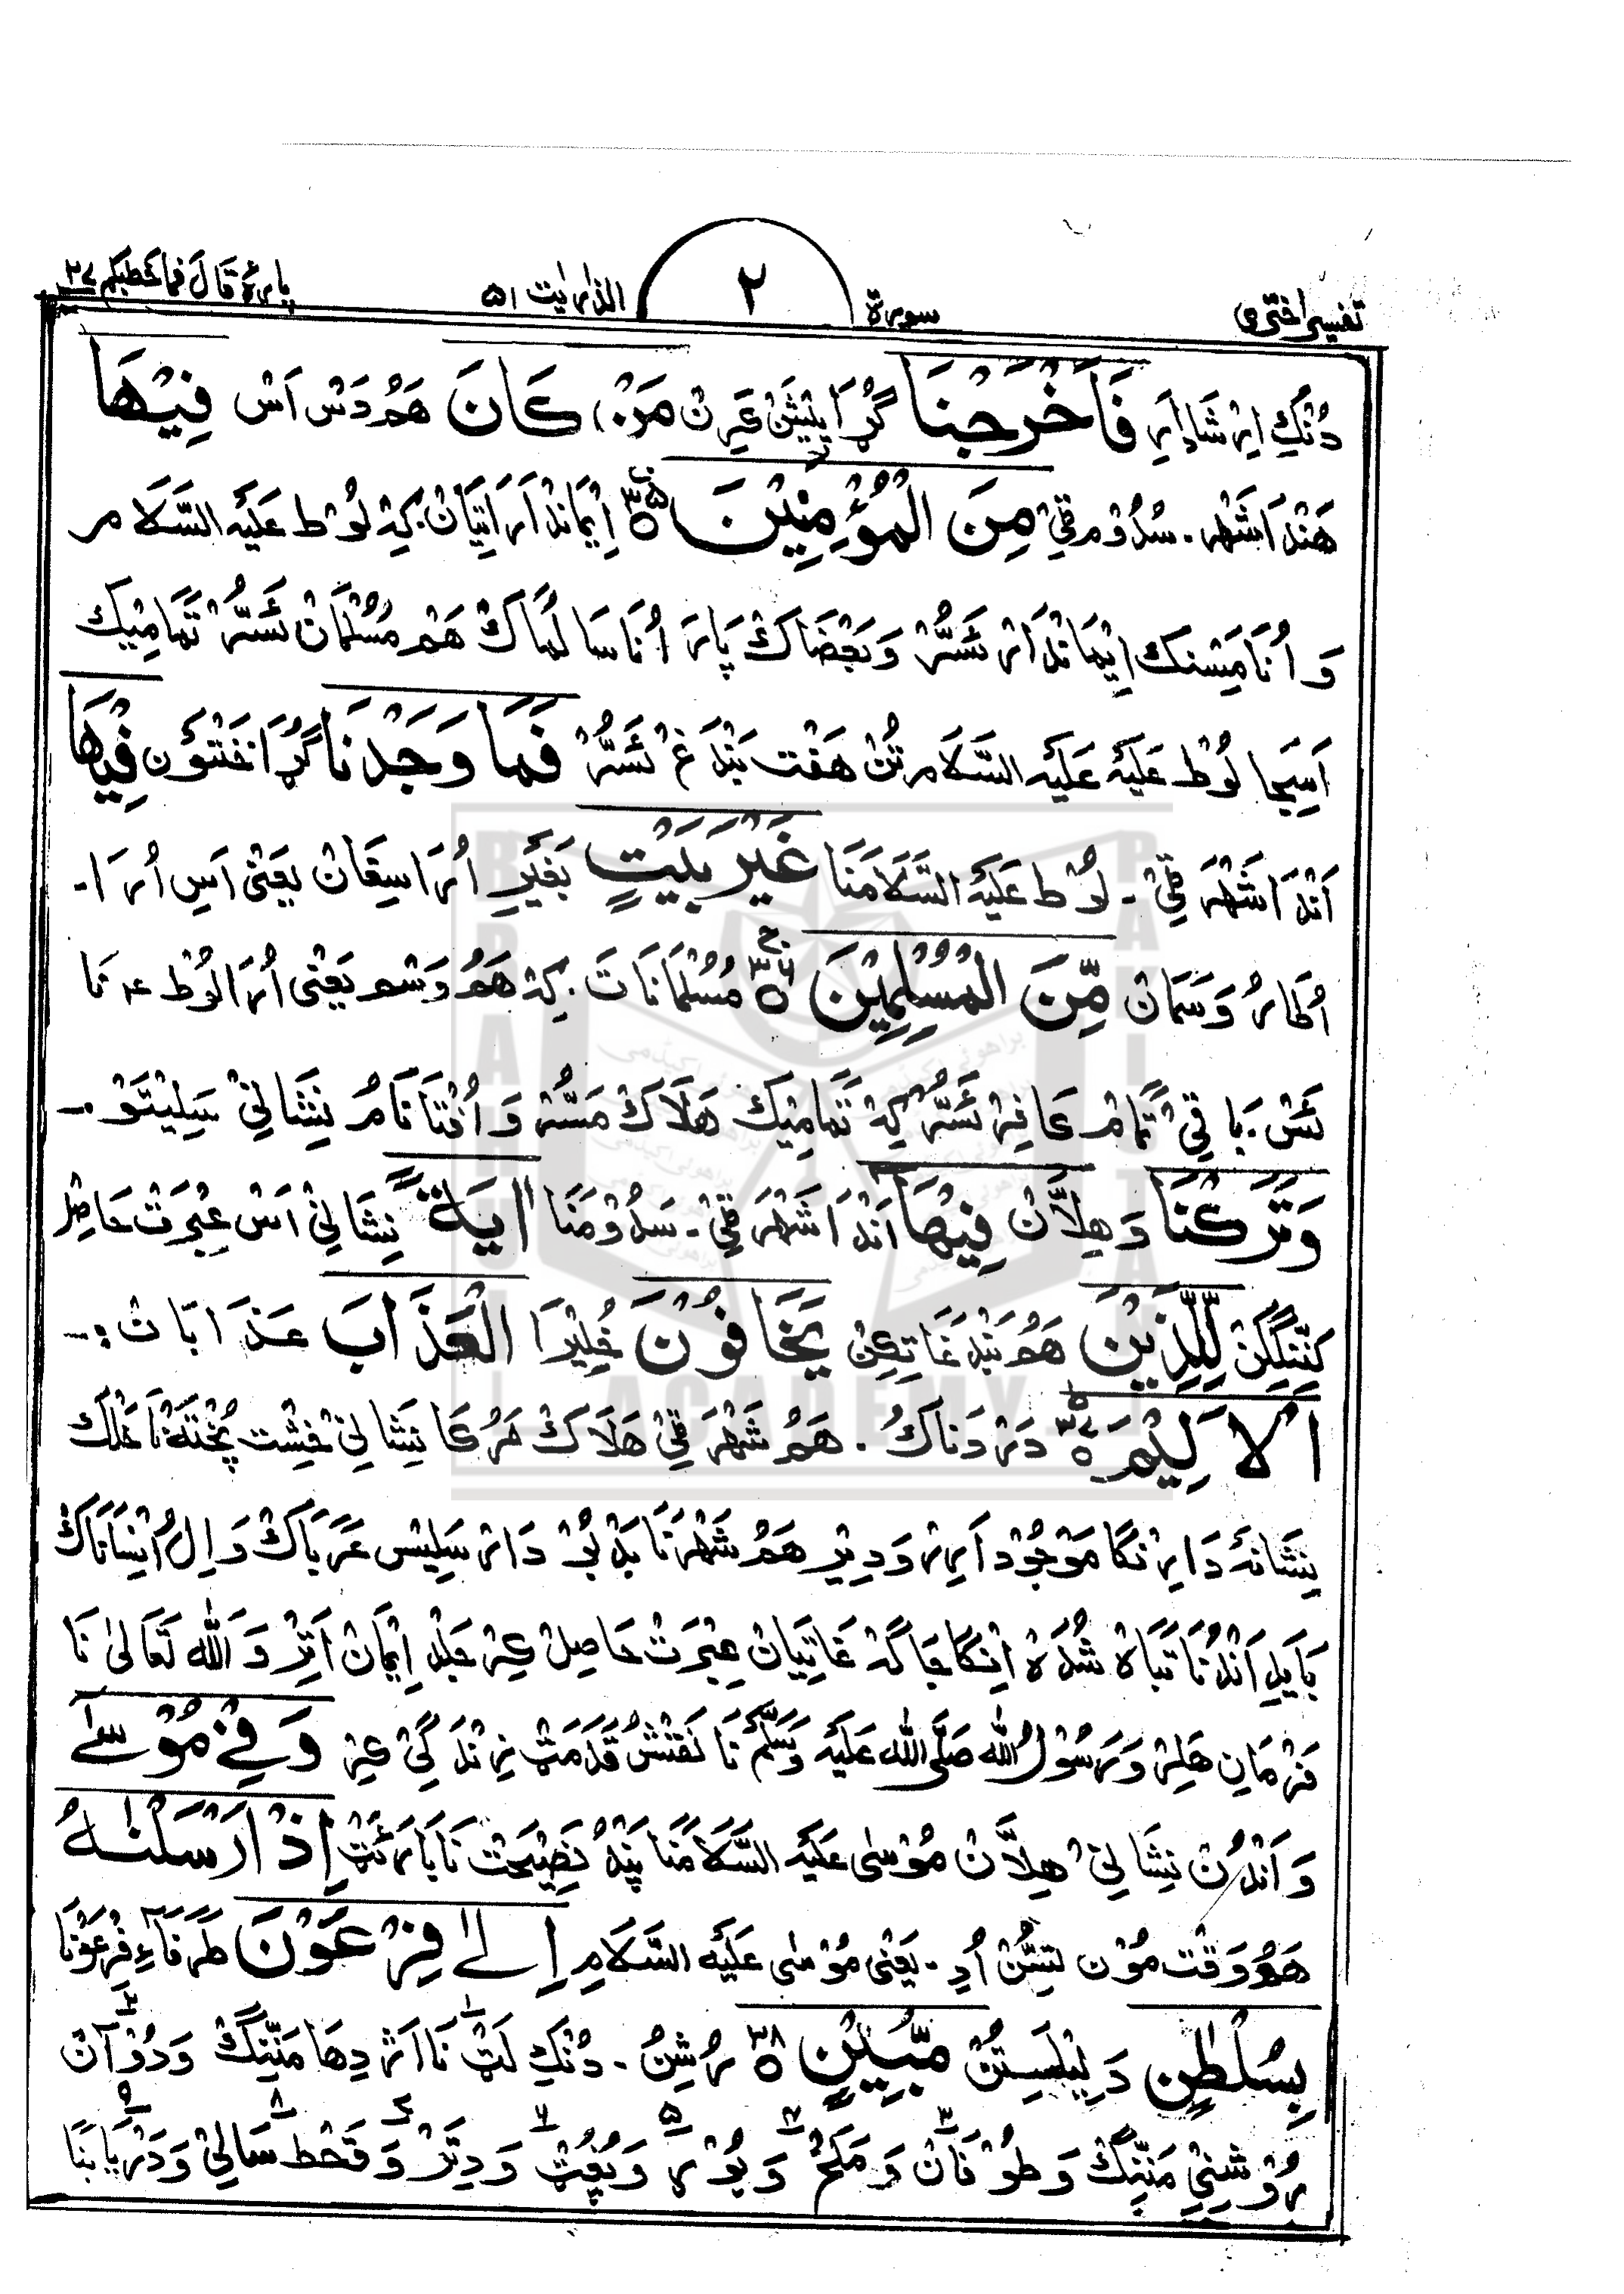 تفسیر اختری سورة ۲ الذاریٰت ۵۱ پارۂ قَالَ فما خطبکم ۲۷
دُنْکِ اِرْشَادِ اَرِ فَاَخْرَجْنَا گُڑا مَنْ كَانَ هَمُ دَسْ اَسْ فِيْهَا
هَنْدَا شَهْر ـ سُدُوْم ٹِیْ مِنَ الْمُؤْمِنِيْنَ ۳۵ اِیْمَانْدَارَاتِیَانْ ـ کِہْ لُوْط عَلَیْهِ السَّلَام
وَ اُنَا مَسِنْک اِیْمَانْدَارْ نَسُّرْ وَ بَعْضَاکْ پَارَ اُنَا سَالُمَاکْ هَمْ مُسْلِمَانْ نَسُّرْ تَمَامِیْک
لُوْط عَلَیْهِ عَلَیْهِ السَّلَام تُنْ هَفْت بَنْدَغْ نَسُّرْ فَمَا وَجَدْنَا گُڑا خَنْتَوُن فِيْهَا
اَنْدَا شَهْرَ ٹِیْ ـ لُوْط عَلَیْهِ السَّلَامَنَا غَيْرَ بَيْتٍ بَغَیْرِ اُرَاسِقَانْ یَعْنِیْ اَسِ اُرَا ـ
وَسَمَانْ مِّنَ الْمُسْلِمِيْنَ ۳۶ مُسْلِمَانَاتَ ـ کِہْ هَمُوْ وَسْم یَعْنِی اُرَا لُوْط ؑ نَا
نَسْ ـ بَاقِیْ تَمَامْ کَافِرْ نَسُّرْ کِہْ تَمَامِیْک هَلَاکْ مَسُّرْ وَ اُفْتَا نَامُ نِشَانِیْ سَلِیْتَوْ ـ
وَتَرَكْنَا وَ هِلَّانْ فِيْهَا اَنْدَا شَهْرَ ٹِیْ ـ سَدُوْمَنَا اٰيَةً نِشَانِیْ اَسْ عِبْرَتْ حَاصِلْ
کَنِنْگِکِنْ لِّلَّذِيْنَ هَمُ بَنْدَغَاتِکِنْ يَخَافُوْنَ خُلِیْرَا الْعَذَابَ عَذَابَانْ :ـ
الْاَلِيْمَ ۳۷ دَرْدَنَاکُ ـ هَمُ شَهْرَ ٹِیْ هَلَاکْ مَرُکَا نِشَانِیْ خِشْت پُخْتَہْ نَا
نِشَانَہْ دَاسْکَا مَوْجُوْد اَرِرْ وَ دِیْر هَمُ شَهْرَنَا بَدْ بُوْ دَارْ سَلِیْس عَرَبَاکْ وَ اِلُ اِنْسَانَاکْ
بَایَدِ اَنْدُنَا تَبَاهْ شُدَہْ اِنْکَا جَاگَہْ غَاتِیَانْ عِبْرَتْ حَاصِلْ کِرْ جَلْد اِیْمَانْ اَتِرْ وَ اللّٰه تَعَالٰی نَا
فَرْمَانِ هَلِرْ وَ رَسُوْلُ اللّٰه صَلَّى اللّٰه عَلَیْهِ وَسَلَّمْ نَا نَقْشُ قَدَمَٹْ زِنْدَگِیْ کِرْ وَفِيْ مُوْسٰٓى
وَ اَنْدُنْ نِشَانِیْ هِلَّانْ مُوْسٰی عَلَیْهِ السَّلَامَنَا پَنْدُ نَصِیْحَتْ نَا بَارَئَٹْ اِذْ اَرْسَلْنٰهُ
هَمُو وَقْت مُوْن تِسُّنْ اُدِ ـ یَعْنِی مُوْسٰی عَلَیْهِ السَّلَامِ اِلٰى فِرْعَوْنَ طَرَفَاءِ فِرْعَوْنَا
بِسُلْطٰنٍ دَلِیْلَسِتُنْ مُّبِيْنٍ ۳۸ رُشِنُ ـ دُنْکِ لَٹْ نَا اَژْدِهَا مَنِّنِگْ ۱ وَ دُوْآنْ ۲
رُوْشِنِیْ مَنِّنِگْ وَ طُوْفَانْ ۳ وَ مَلَخْ ۴ وَ بُوْرْ ۵ وَ پُغُٹْ ۶ وَ دِتَرْ وَ قَحْط سَالِیْ ۸ وَ دَرْیَابَنَا ۹